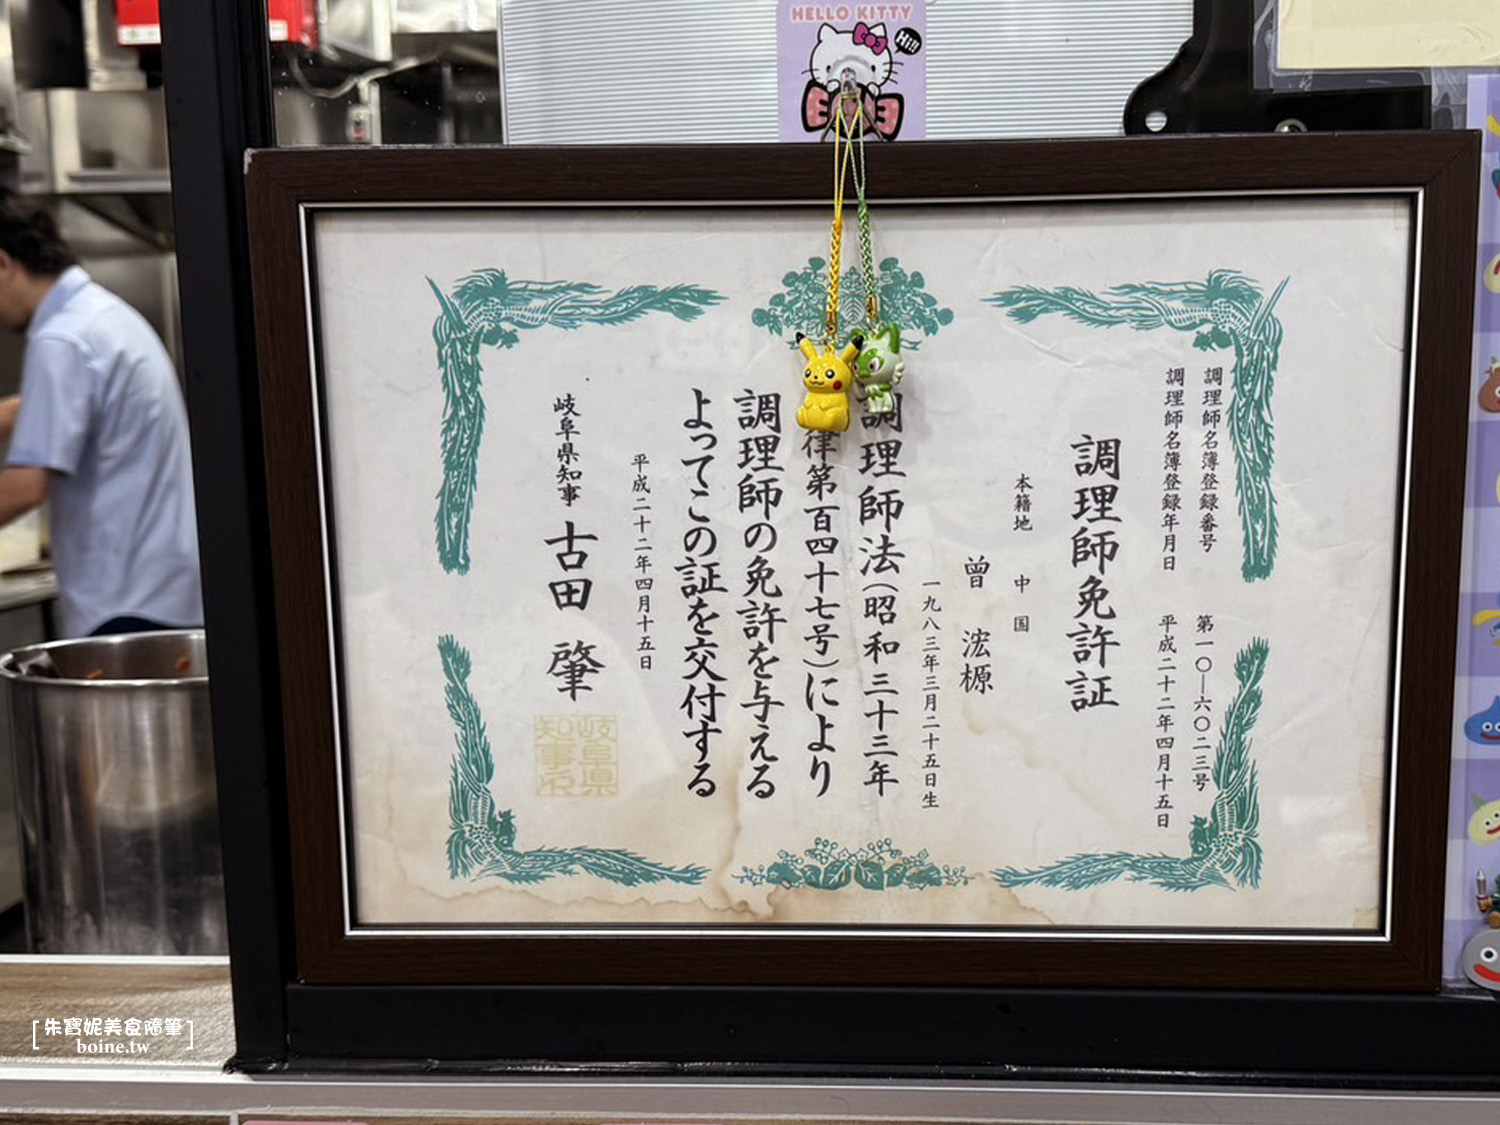 HELLO KITTY
Hi!!
調理師名簿登録番号 第一〇―六〇二三号
調理師名簿登録年月日 平成二十二年四月十五日
調理師免許証
本籍地 中国
曾 浤榞
一九八三年三月二十五日生
調理師法(昭和三十三年
律第百四十七号)により
調理師の免許を与える
よってこの証を交付する
平成二十二年四月十五日
岐阜県知事 古田 肇
岐阜県
知事
[朱寶妮美食隨筆]
boine.tw